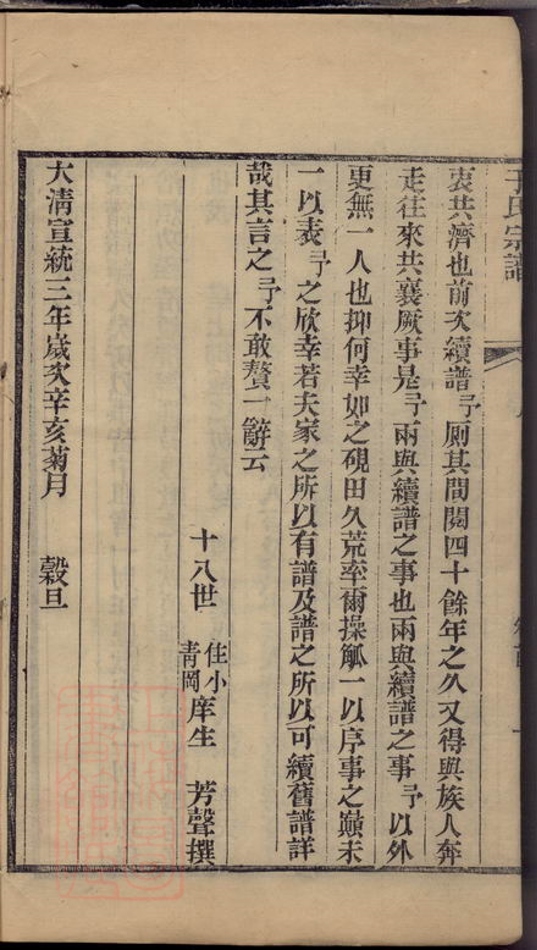 于氏宗譜
衷共濟也前次續譜予厠其間閱四十餘年之久又得與族人奔
走往來共襄厥事是予兩與續譜之事也兩與續譜之事予以外
更無一人也抑何幸如之硯田久荒率爾操觚一以序事之巔末
一以表予之欣幸若夫家之所以有譜及譜之所以可續舊譜詳
哉其言之予不敢贅一辭云
十八世 住小青岡 庠生 芳聲撰
大清宣統三年歲次辛亥菊月 穀旦